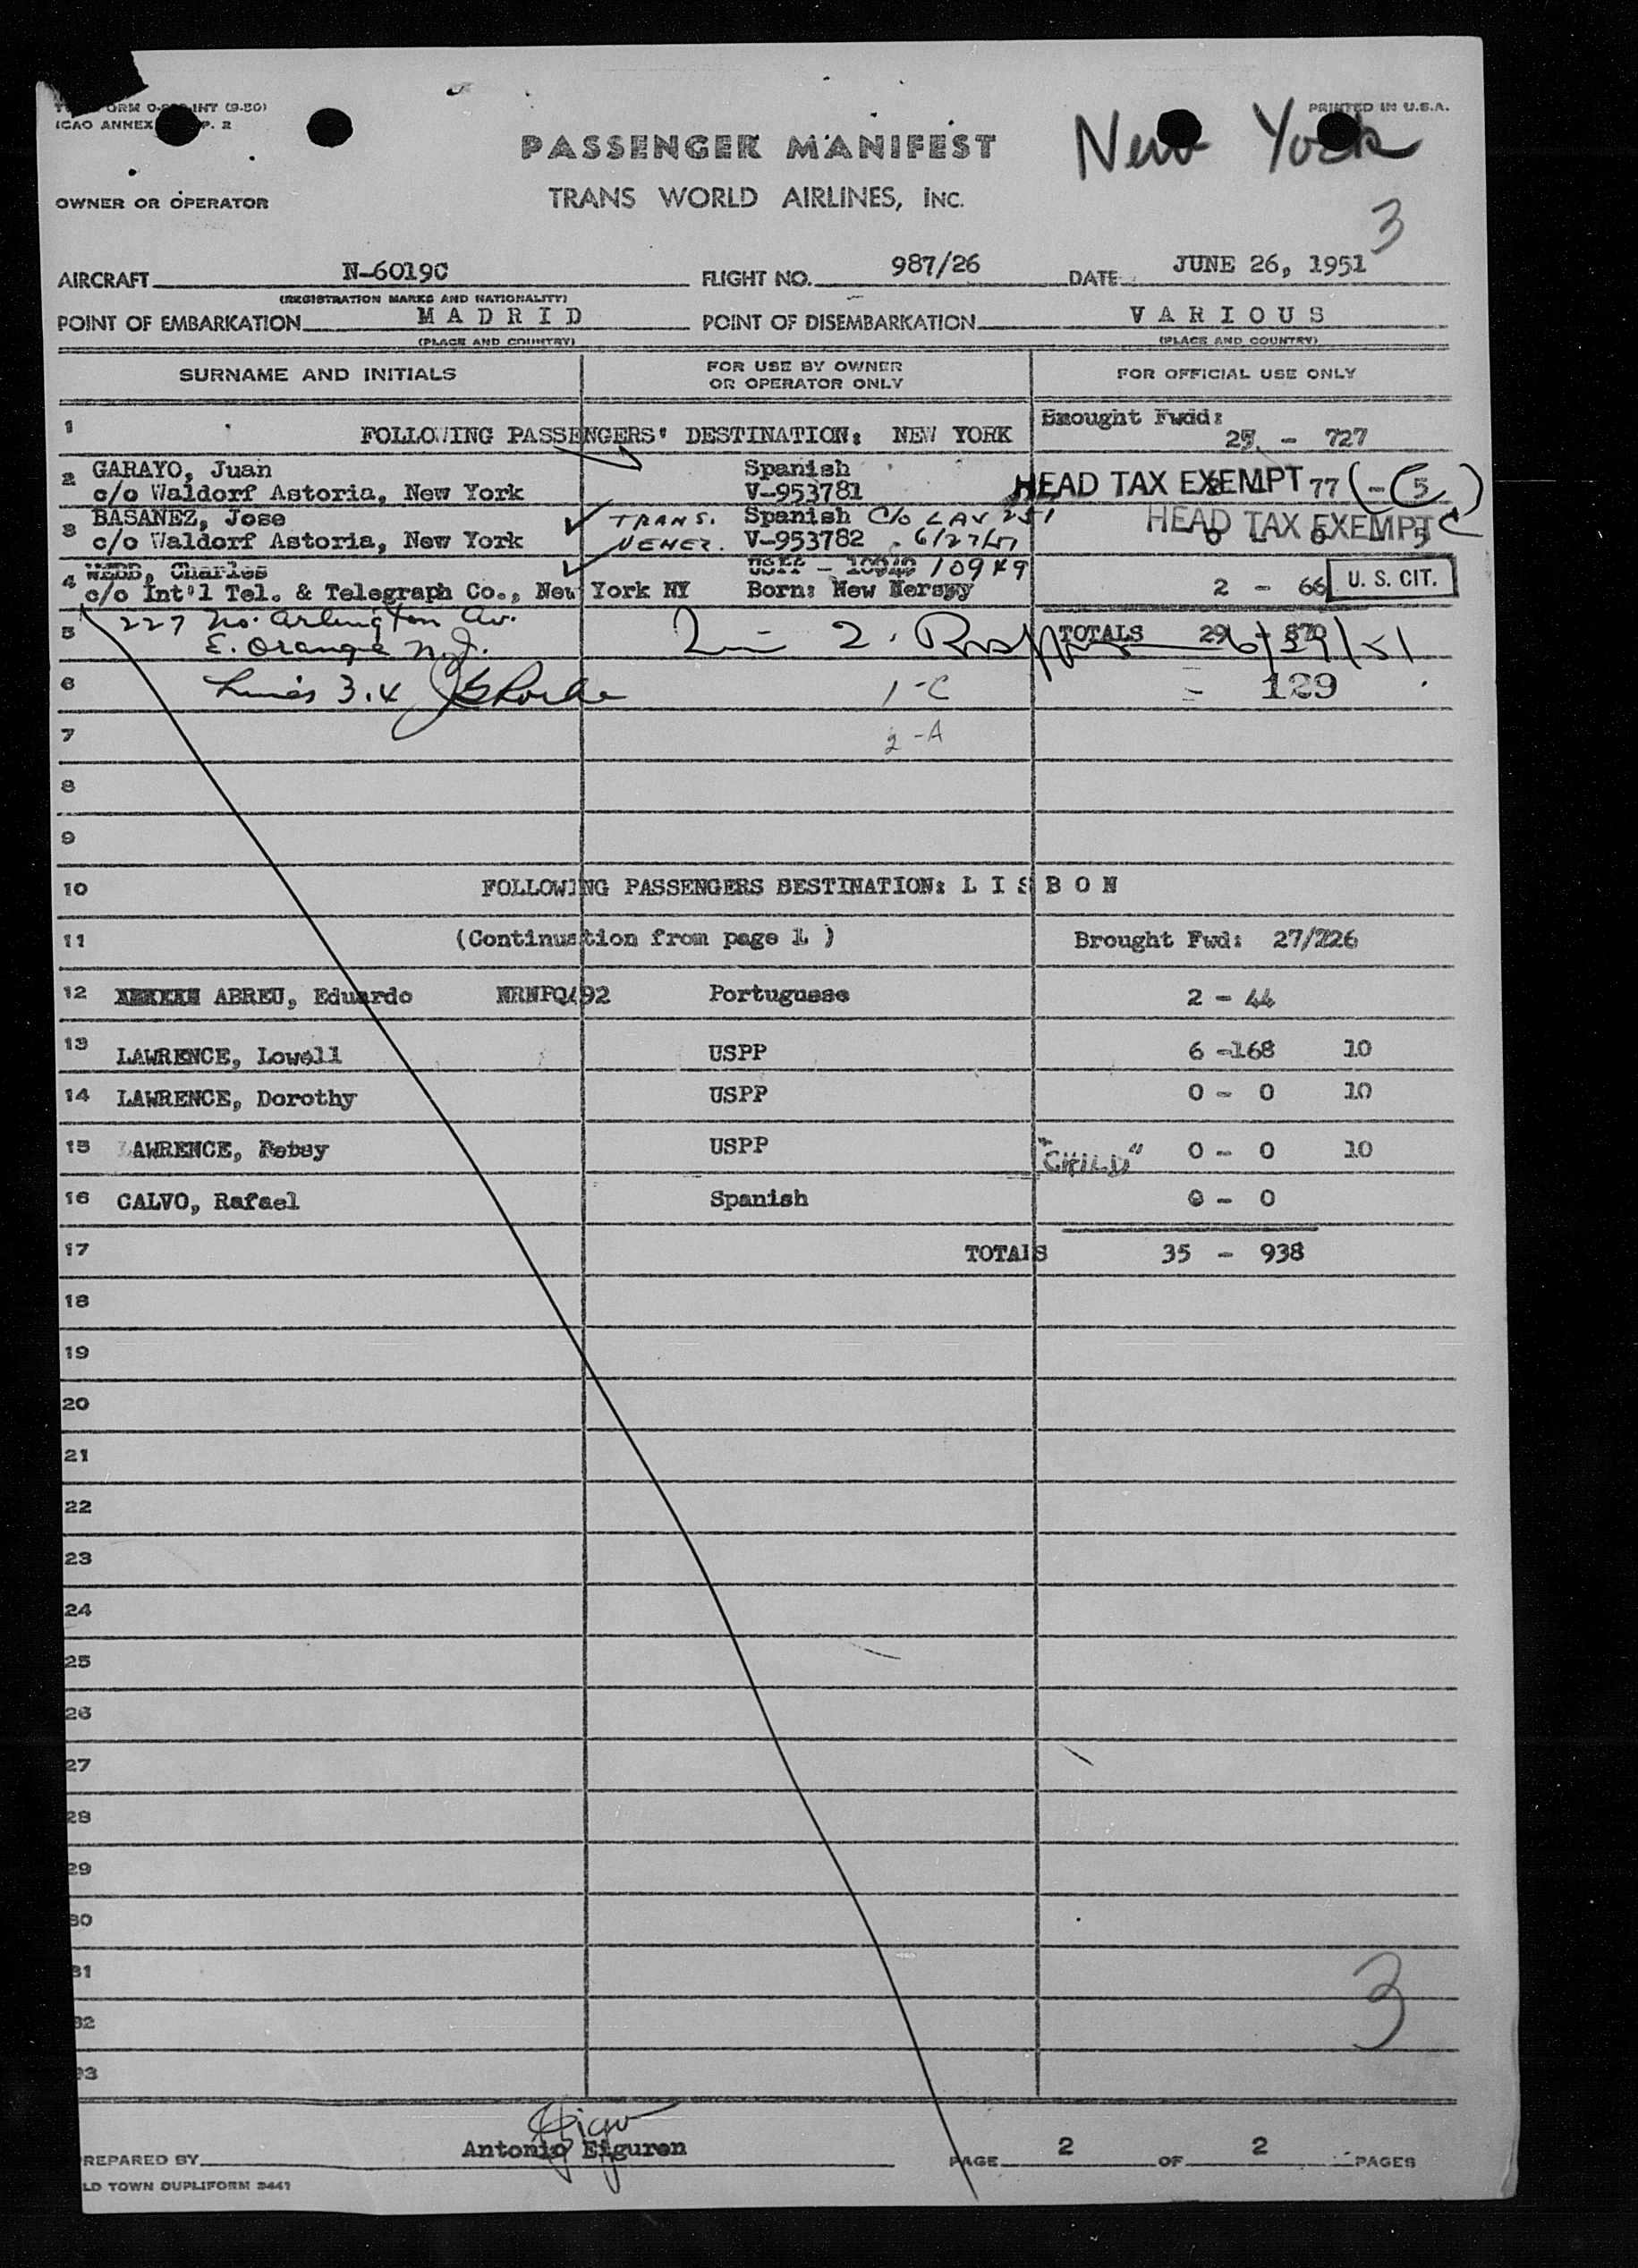 ORM O- INT (9-50)
PRINTED IN U.S.A.
ICAO ANNEX P. 2
New York
PASSENGER MANIFEST
OWNER OR OPERATOR
TRANS WORLD AIRLINES, INC.
3
AIRCRAFT N-6019C FLIGHT NO. 987/26 DATE JUNE 26, 1951
(REGISTRATION MARKS AND NATIONALITY)
POINT OF EMBARKATION M A D R I D POINT OF DISEMBARKATION V A R I O U S
(PLACE AND COUNTRY) (PLACE AND COUNTRY)
SURNAME AND INITIALS FOR USE BY OWNER OR OPERATOR ONLY FOR OFFICIAL USE ONLY
1 FOLLOWING PASSENGERS' DESTINATION: NEW YORK Brought Fwdd:
25 - 727
2 GARAYO, Juan Spanish
c/o Waldorf Astoria, New York V-953781 HEAD TAX EXEMPT 77 (- 5)
3 BASANEZ, Jose TRANS. Spanish C/o LAV 251 HEAD TAX EXEMPT C
c/o Waldorf Astoria, New York VENEZ. V-953782 6/27/51
4 WEBB, Charles USPP - 10949
c/o Int'l Tel. & Telegraph Co., New York NY Born: New Nersey 2 - 66 U. S. CIT.
5 227 No. Arlington Av.
E. Orange N.J. TOTALS 29 - 870
6 Lines 3.4 1-C 129
7 2-A
8
9
10 FOLLOWING PASSENGERS DESTINATION: L I S B O N
11 (Continuation from page 1 ) Brought Fwd: 27/226
12 ABREU, Eduardo NRNPQ492 Portuguese 2 - 44
13 LAWRENCE, Lowell USPP 6 -168 10
14 LAWRENCE, Dorothy USPP 0 - 0 10
15 LAWRENCE, USPP "CHILD" 0 - 0 10
16 CALVO, Rafael Spanish 0 - 0
17 TOTALS 35 - 938
18
19
20
21
22
23
24
25
26
27
28
29
30
31
32
33
3
PREPARED BY Antonio Eiguren PAGE 2 OF 2 PAGES
LD TOWN DUPLIFORM 9441